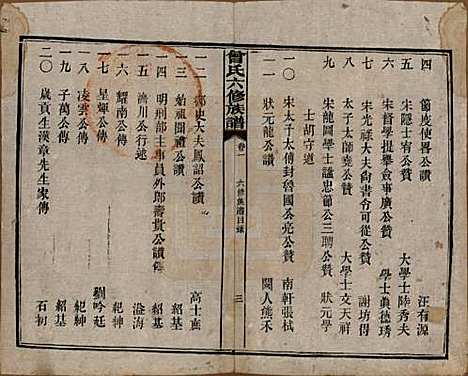 四 節度使畧公贊 汪有源
五 宋隱士宥公贊 大學士陸秀夫
六 宋督學提舉僉事廣公贊 學士眞德琇
七 宋光祿大夫尚書令可從公贊 謝坊得
八 太子太師堯公贊 大學士文天祥
九 宋龍圖學士謚忠節公三聘公贊 狀元學
士胡守道
一〇 宋太子太傅封魯國公亮公贊 南軒張栻
一一 狀元龍公讚 閩人熊禾
曾氏六修族譜 卷一 六修 目錄 三
一二 御史大夫鳳詔公讚 高士薦
一三 始祖開禮公讚 紹基
一四 明刑部主事員外郎壽貴公讚傳
一五 濟川公行述 溢海
一六 耀南公傳 紀紳
一七 星輝公傳 劉吟廷
一八 凌雲公傳 紀紳
一九 子萬公傳 紹基
二〇 歲貢生漢章先生家傳 石初